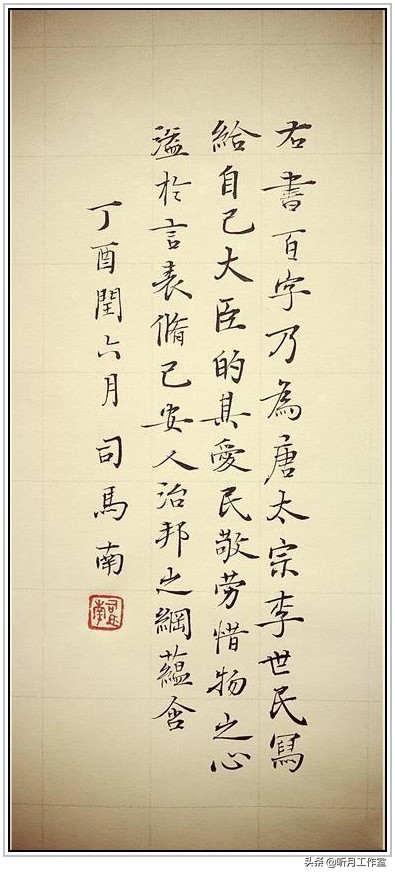 右書百字乃為唐太宗李世民寫
給自己大臣的其愛民敬勞惜物之心
溢於言表脩己安人治邦之綱蘊含
丁酉閏六月 司馬南
头条 @听月工作室